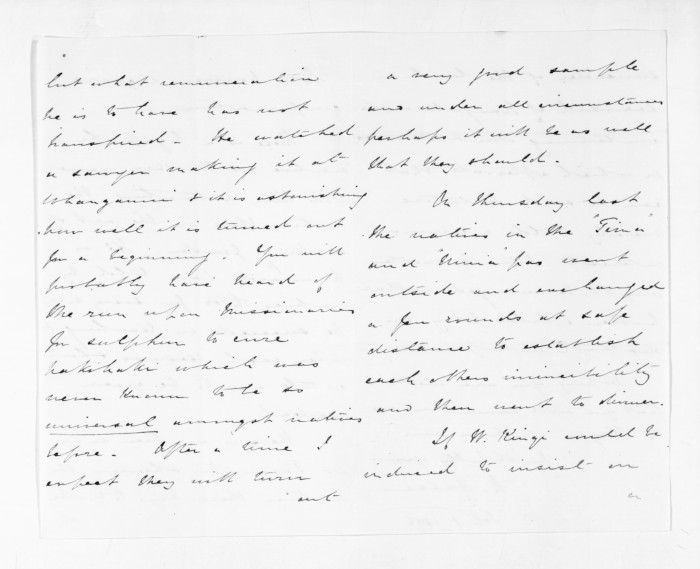 but what remuneration
he is to have has not
transpired - He watched
a sawyer making it at
Whanganui & it is astonishing
how well it is turned out
for a beginning. You will
probably have heard of
the run upon Missionaries
for sulphur to cure
hakihaki which was
never known to be so
universal amongst natives
before. After a time I
expect they will turn
out
a very good sample
and under all circumstances
perhaps it will be as well
that they should.
On Thursday last
the natives in the
and pas went
outside and exchanged
a few rounds at safe
distance to establish
each others invincibility
and then went to dinner.
If W. Kingi could be
induced to insist on